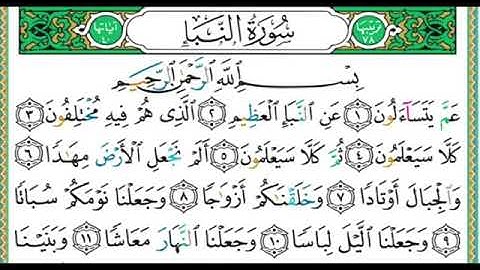 ترتيبها ٧٨ سُورَةُ النَّبَإِ آياتها ٤٠
بِسْمِ اللَّهِ الرَّحْمَٰنِ الرَّحِيمِ
عَمَّ يَتَسَآءَلُونَ ١ عَنِ النَّبَإِ الْعَظِيمِ ٢ الَّذِي هُمْ فِيهِ مُخْتَلِفُونَ ٣
كَلَّا سَيَعْلَمُونَ ٤ ثُمَّ كَلَّا سَيَعْلَمُونَ ٥ أَلَمْ نَجْعَلِ الْأَرْضَ مِهَٰدًا ٦
وَالْجِبَالَ أَوْتَادًا ٧ وَخَلَقْنَٰكُمْ أَزْوَٰجًا ٨ وَجَعَلْنَا نَوْمَكُمْ سُبَاتًا
٩ وَجَعَلْنَا الَّيْلَ لِبَاسًا ١٠ وَجَعَلْنَا النَّهَارَ مَعَاشًا ١١ وَبَنَيْنَا